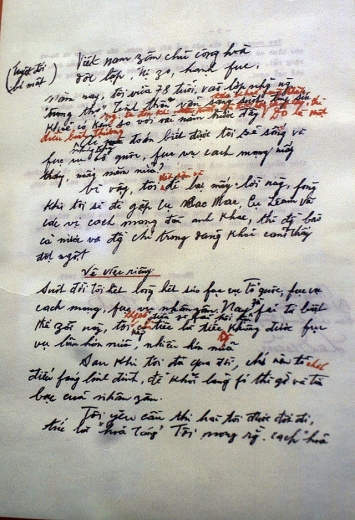 (Tuyệt đối
bí mật)
Việt nam zân chủ cộng hoà
độc lập, tự zo, hạnh fúc.
Năm nay, tôi vừa 78 tuổi, vào lớp những
"trung thọ". Tinh thần vẫn sáng suốt, thân thể
khoẻ, kém so với vài năm trước đây. Đó là một
điều bình thường
biết được tôi còn sống và
fục vụ tổ quốc, fục vụ cách mạng mấy
tháng, mấy năm nữa?
Vì vậy, tôi để lại mấy lời này, fòng
khi tôi sẽ đi gặp cụ Mác, cụ Lênin và
các vị cách mạng đàn anh khác, thì đồng bào
cả nước và đồng chí trong đảng khỏi cảm thấy
đột ngột.
Về việc riêng
Suốt đời tôi hết lòng hết sức fục vụ tổ quốc, fục vụ
cách mạng, fục vụ nhân zân. Nay zù fải từ biệt
thế giới này, tôi tiếc là tiếc không được fục
vụ lâu hơn nữa, nhiều hơn nữa.
Sau khi tôi đã qua đời, chớ nên tổ chức
điếu fúng linh đình, để khỏi lãng fí thì giờ và tiền
bạc của nhân zân.
Tôi yêu cầu thi hài tôi được đốt đi,
tức là "hoả táng". Tôi mong rằng cách "hoả